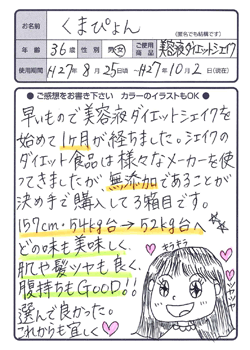 お名前 くまぴょん (匿名でも結構です)
年齢 36歳 性別 男・女 ご使用商品 美容液ダイエットシェイク
使用期間 H27年8月25日~H27年10月2日(現在)
●ご感想をお書き下さい カラーのイラストもOK●
早いもので美容液ダイエットシェイクを
始めて1ヶ月が経ちました。シェイクの
ダイエット食品は様々なメーカーを使っ
てきましたが、無添加であることが
決め手で購入して3箱目です。
157cm・54kg台→52kg台へ☆
どの味も美味しく、
肌や髪ツヤも良く、
腹持ちもGOOD!!
選んで良かった。
これからも宜しく♡
キラキラ
ツヤツヤ